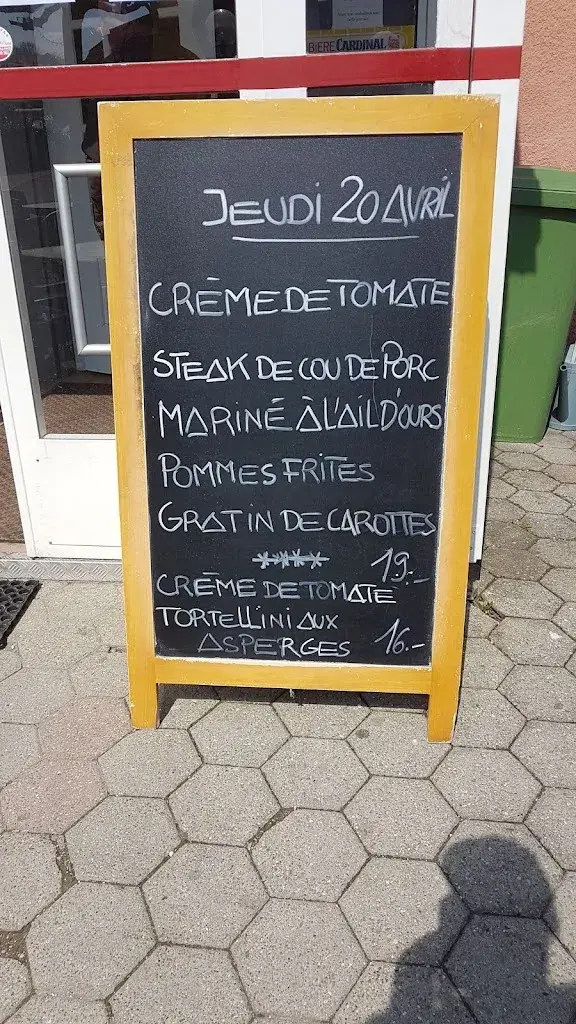 BIERE CARDINAL
JEUDI 20 AVRIL
CRÈME DE TOMATE
STEAK DE COU DE PORC
MARINÉ À L'AIL D'OURS
POMMES FRITES
GRATIN DE CAROTTES
**** 19.-
CRÈME DE TOMATE
TORTELLINI AUX
ASPERGES 16.-